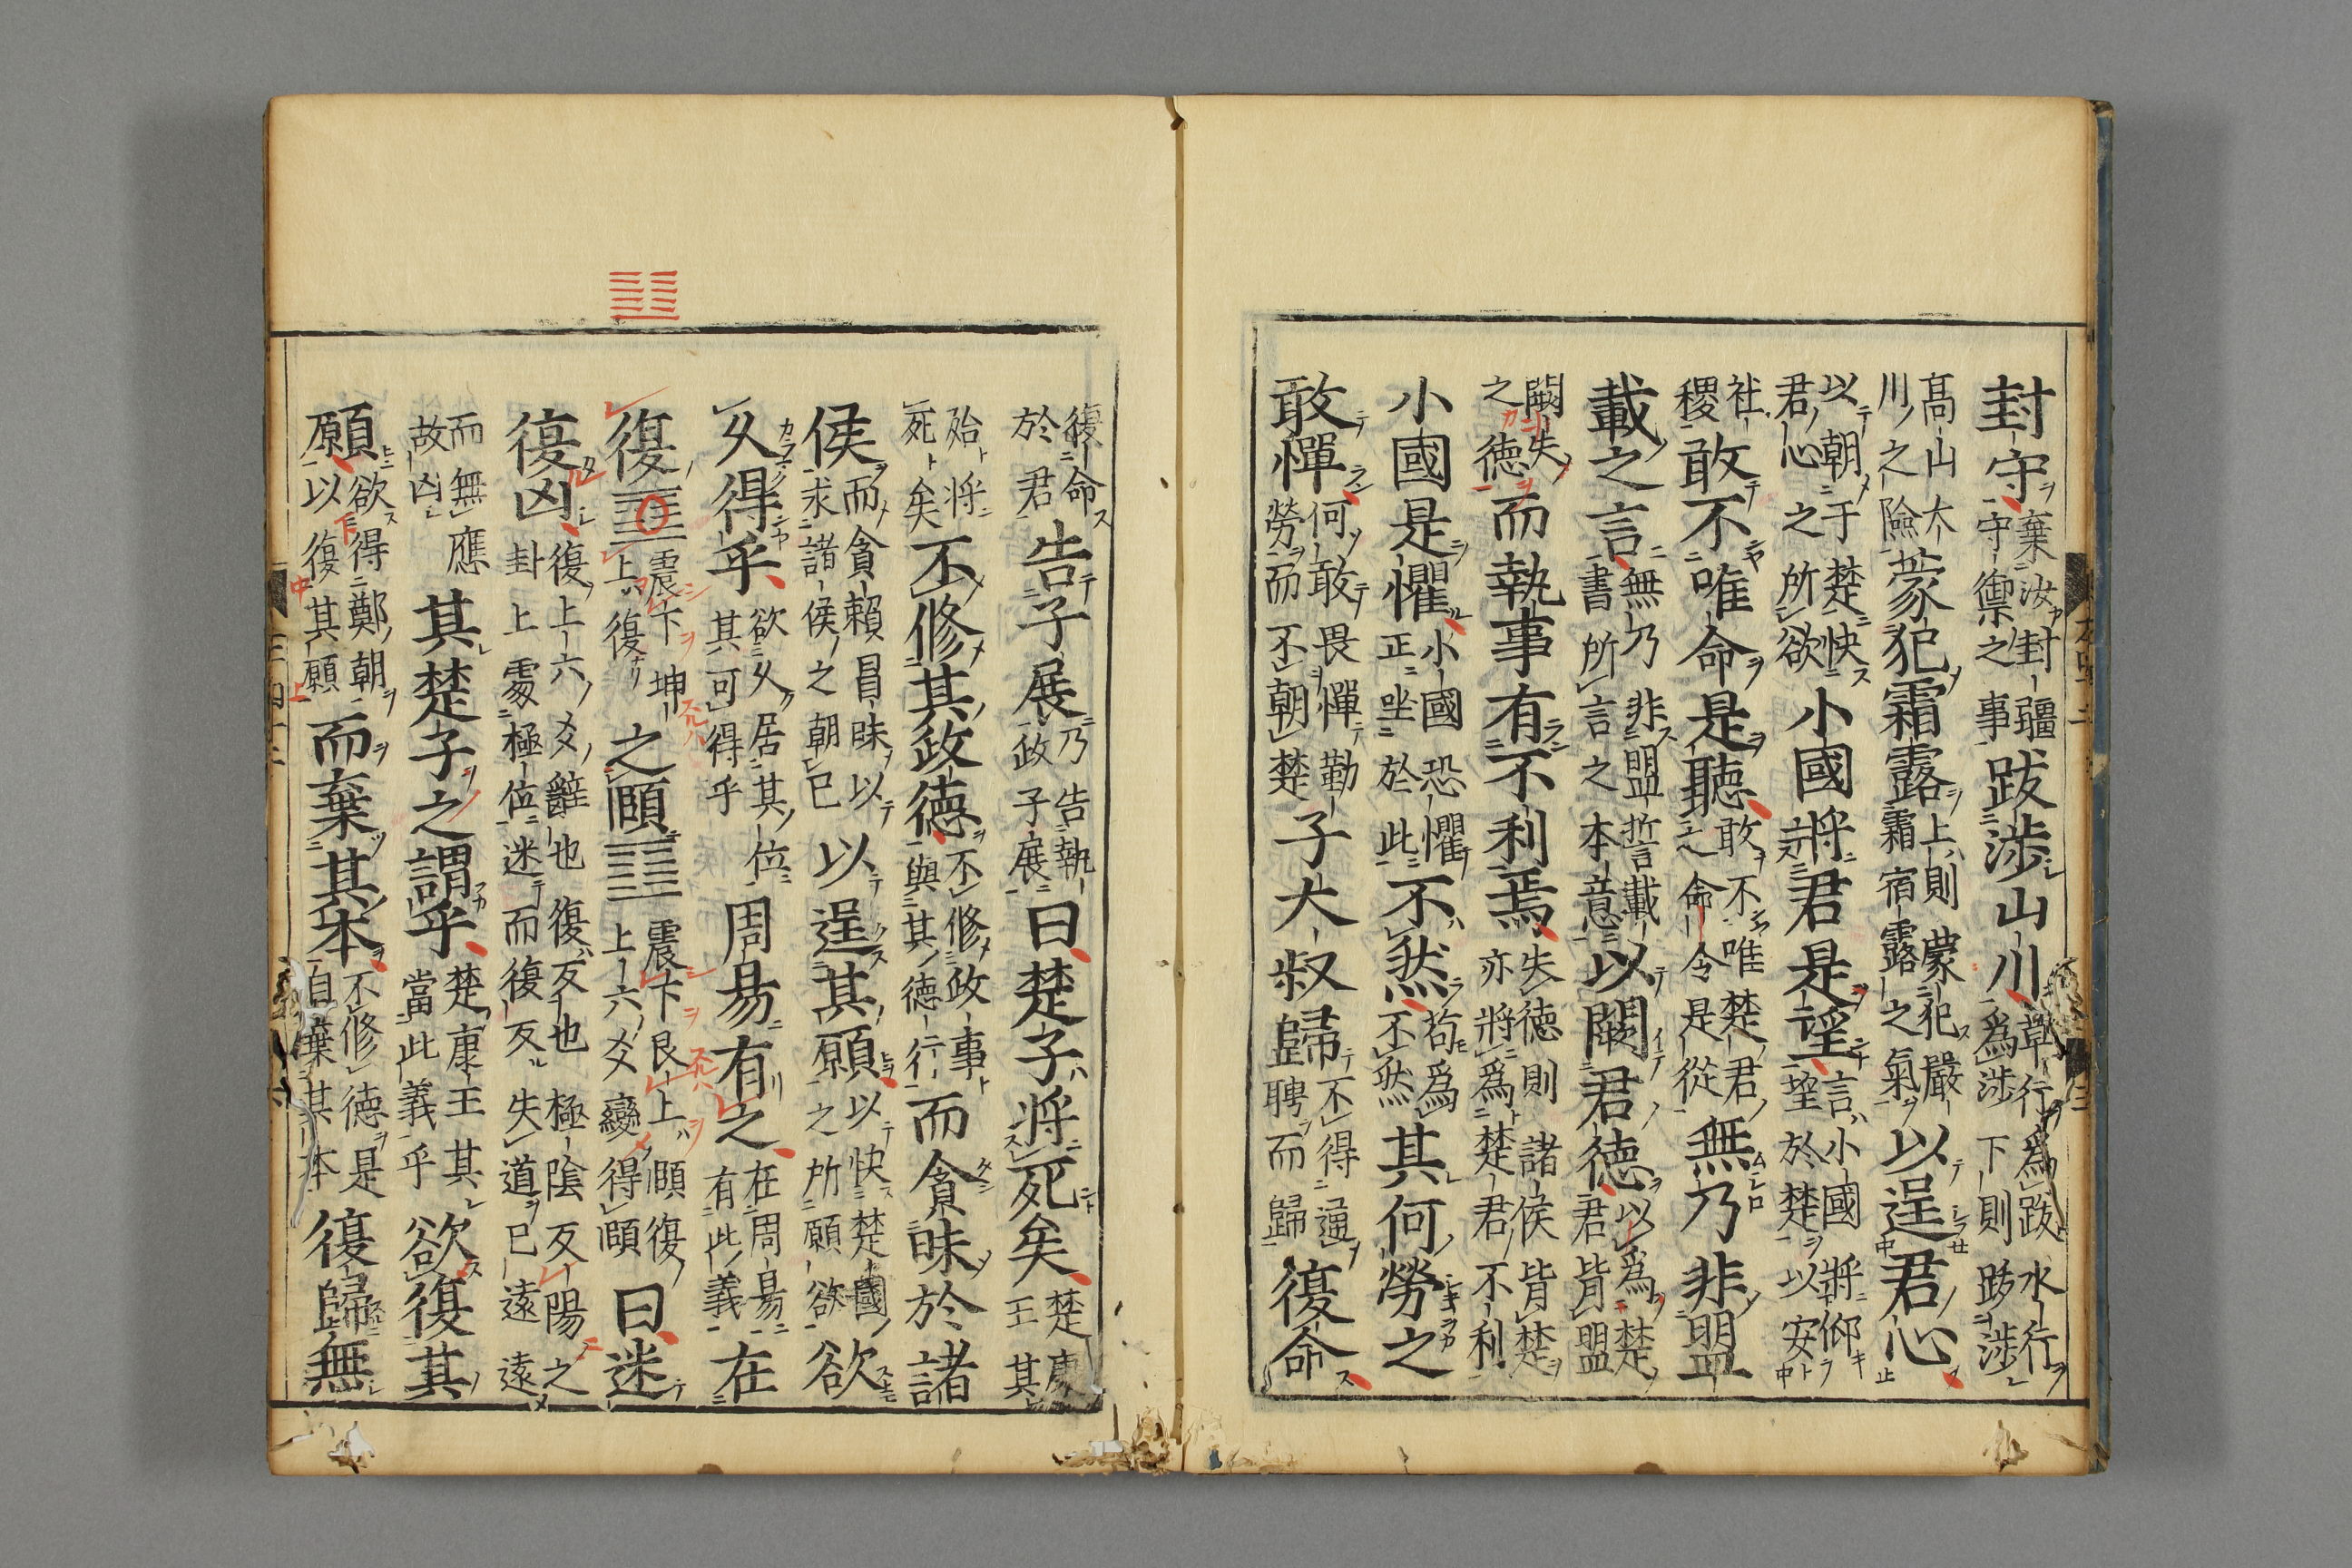 封守棄汝封疆守禦之事跋涉山川草行爲跋水行爲涉下則跡涉
高山大川之險蒙犯霜露上則蒙犯嚴霜宿露之氣以逞君心
以朝于楚快君心之所欲小國將君是望言小國將仰望於楚以安
社稷敢不唯命是聽敢不唯楚君之命令是從無乃非盟
載之言無乃非盟誓載書所言之本意以闕君德以爲楚君皆盟
闕失之德而執事有不利焉失德則諸侯皆楚亦將爲楚君不利
小國是懼小國恐懼正坐於此不然苟爲不然其何勞之
敢憚何敢畏憚勤勞而不朝楚子大叔歸不得通聘而歸復命
復命於君告子展乃告執政子展曰楚子將死矣楚康王其
殆將死矣不修其政德不修政事與其德行而貪昧於諸
侯而貪賴冒昧以求諸侯之朝已以逞其願以快楚國之所願欲欲
久得乎欲久居其位其可得乎周易有之在周易有此義在
復震下坤上復之頤震下艮上頤復上六爻變得頤曰迷
復凶復上六爻辭也復反也極陰反陽之卦上處極位迷而復反失道已遠遠
而無應故凶其楚子之謂乎楚康王其當此義乎欲復其
願欲得鄭朝以復其願而棄其本不修德是自棄其本復歸無